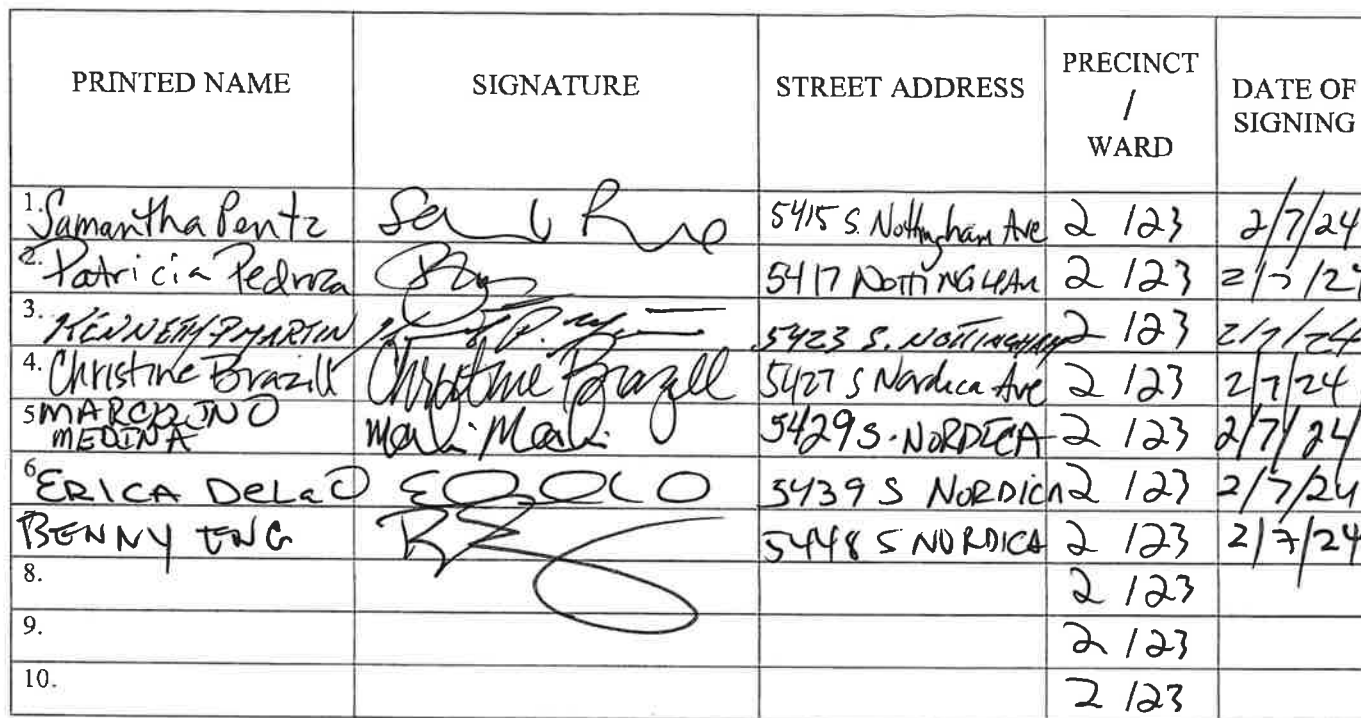 PRINTED NAME SIGNATURE STREET ADDRESS PRECINCT / WARD DATE OF SIGNING
1. Samantha Pentz 5415 S. Nottingham Ave 2 / 23 2/7/24
2. Patricia Pedroza 5417 NOTTINGHAM 2 / 23 2/7/24
3. KENNETH P MARTIN 5423 S. NOTTINGHAM 2 / 23 2/7/24
4. Christine Brazill Christine Brazill 5427 S Nordica Ave 2 / 23 2/7/24
5 MARCELINO MEDINA 5429 S. NORDICA 2 / 23 2/7/24
6 ERICA DeLaO 5439 S NORDICA 2 / 23 2/7/24
BENNY ENG 5448 S NORDICA 2 / 23 2/7/24
8. 2 / 23
9. 2 / 23
10. 2 / 23